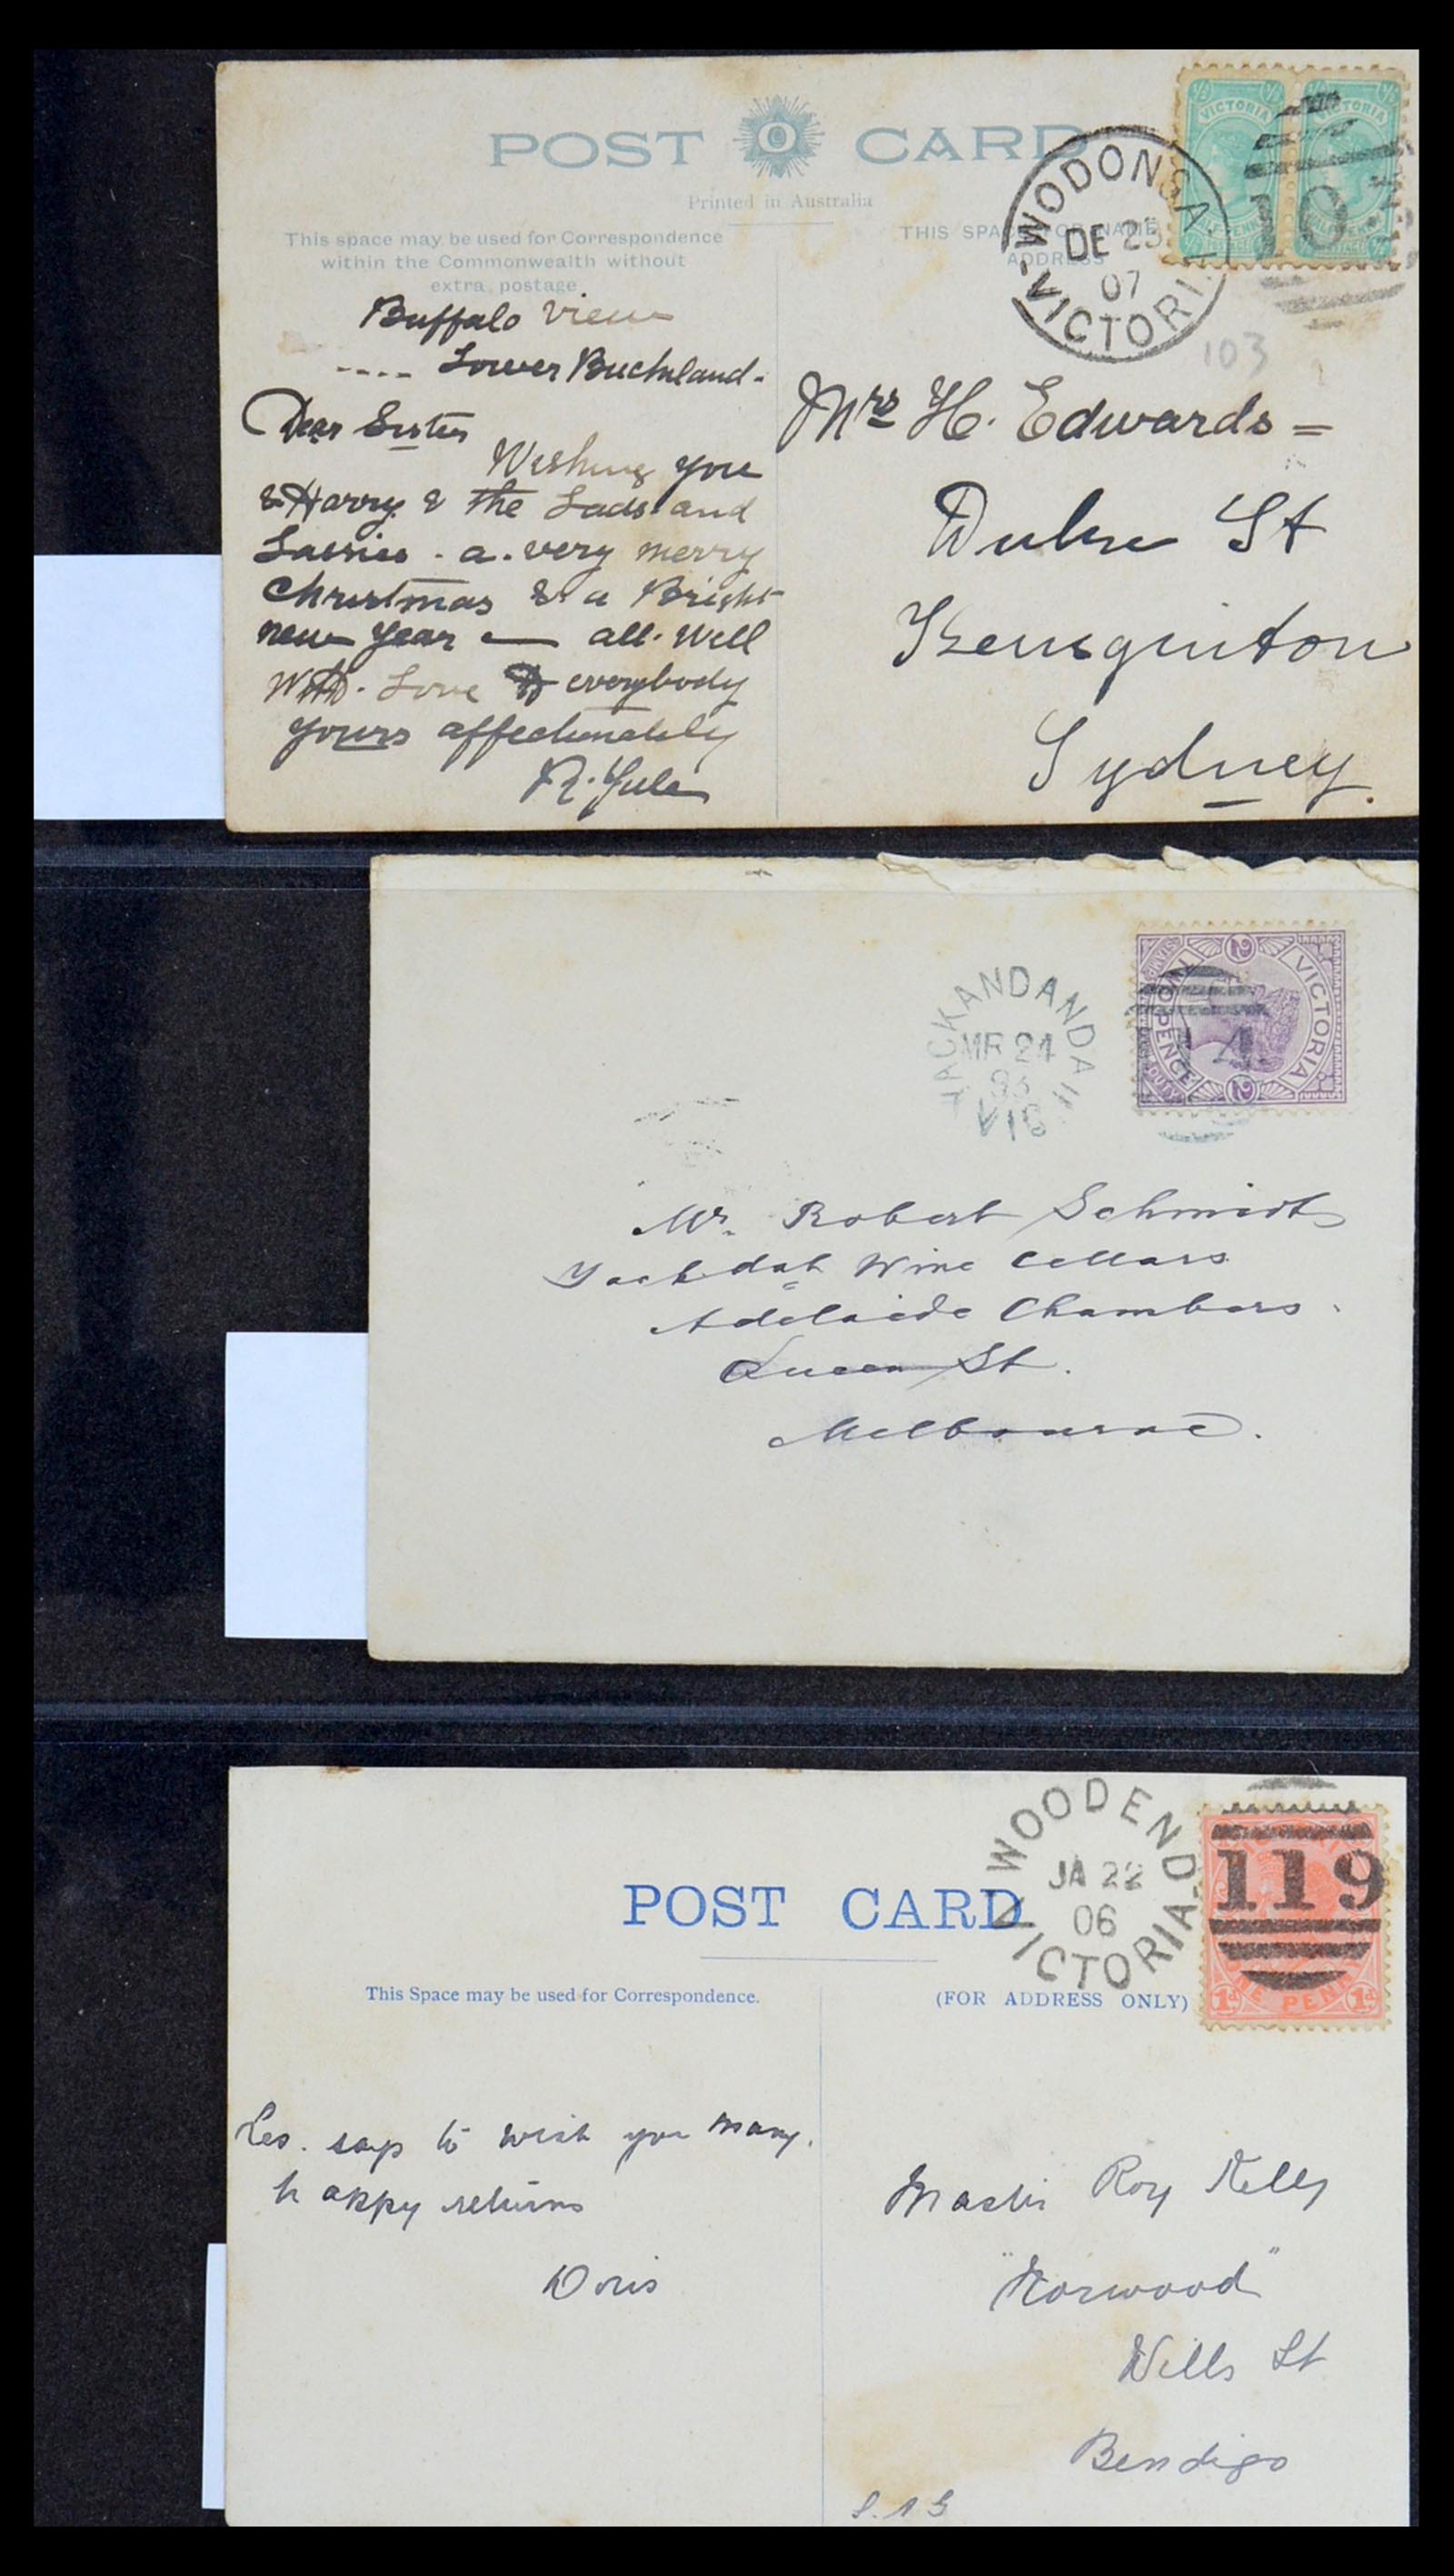 POST CARD
Printed in Australia
This space may be used for Correspondence
within the Commonwealth without
extra postage
THIS SPACE FOR NAME
ADDRESS
WODONGA
DE 23
07
VICTORIA
VICTORIA VICTORIA
10
103
Buffalo View
Lower Buckland.
Dear Sister
Wishing you
& Harry & the Lads and
Lassies. a. very merry
Christmas & a Bright
new year — all. Well
With. Love to everybody
yours affectionately
R. Yule
Mrs H. Edwards =
Duke St
Kensginton
Sydney.
YACKANDANDAH
MR 24
VIC
VICTORIA
TWO PENCE
2 2
STAMP DUTY
Mr. Robert Schmidt
Adelaide Chambers.
Queen St.
Melbourne.
Wine Cellars
WOODEND
JA 22
06
VICTORIA
119
1d ONE PENNY 1d
POST CARD
This Space may be used for Correspondence.
(FOR ADDRESS ONLY)
Les. says to wish you many.
happy returns
Doris
Master Roy Kelly
"Norwood"
Wills St
Bendigo